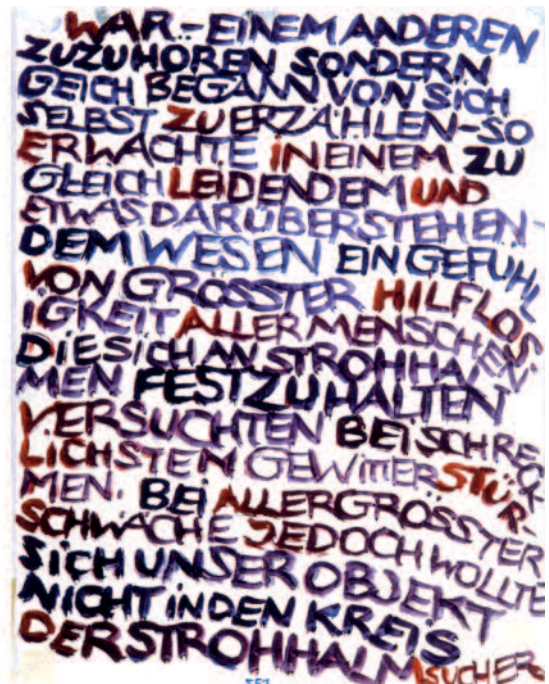 WAR – EINEM ANDEREN
ZUZUHÖREN SONDERN
GEICH BEGANN VON SICH
SELBST ZU ERZÄHLEN – SO
ERWACHTE IN EINEM ZU
GLEICH LEIDENDEM UND
ETWAS DARÜBERSTEHEN-
DEM WESEN EIN GEFÜHL
VON GRÖSSTER HILFLOS-
IGKEIT ALLER MENSCHEN.
DIE SICH AN STROHHAL
MEN FESTZUHALTEN
VERSUCHTEN BEI SCHRECK
LICHSTEM GEWITTERSTÜR-
MEN. BEI ALLERGRÖSSTER
SCHWÄCHE JEDOCH WOLLTE
SICH UNSER OBJEKT
NICHT IN DEN KREIS
DER STROHHALMSUCHER